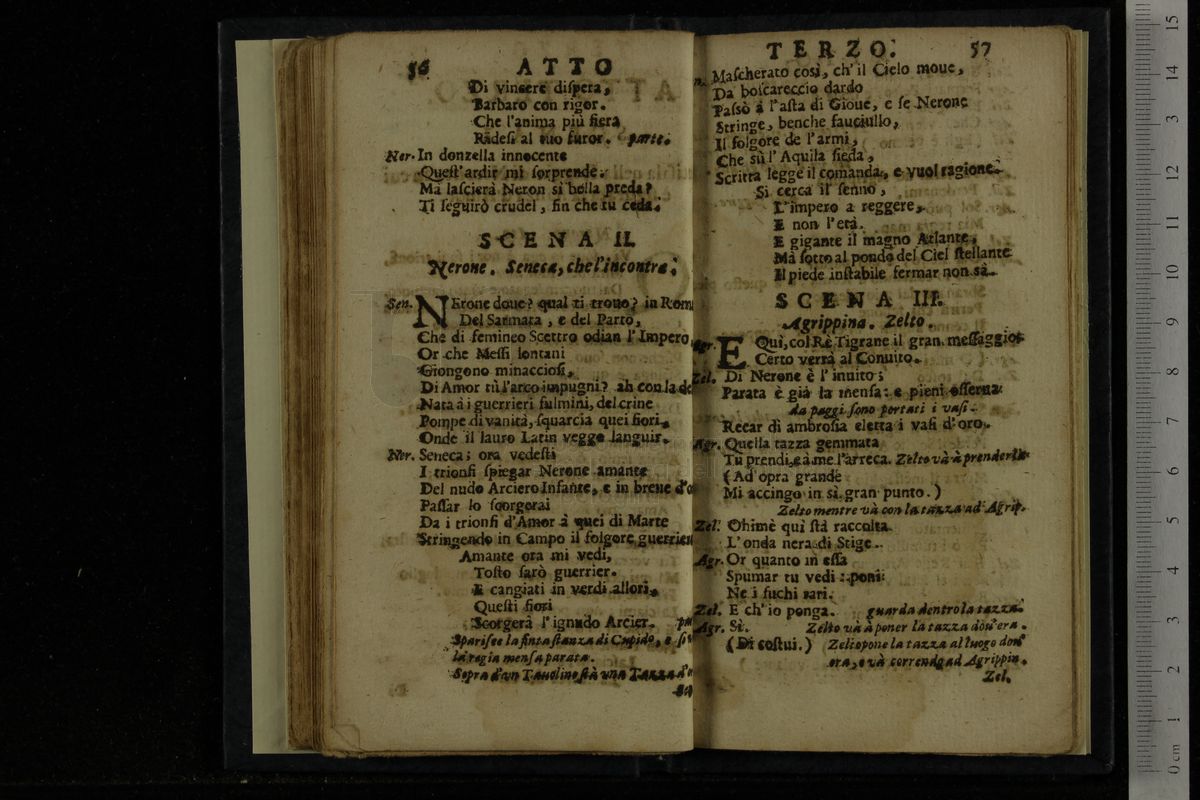 56 ATTO
Di vincere diſpera,
Barbaro con rigor.
Che l'anima più fiera
Radeſi al tuo furor. parte.
Ner. In donzella innocente
Queſt'ardir mi ſorprende.
Ma laſcierà Neron sì bella preda?
Ti ſeguirò crudel, fin che tu ceda.
SCENA II.
Nerone. Seneca, che l'incontra.
Sen. NErone doue? qual ti trouo? in Rom
Del Sarmata, e del Parto,
Che di femineo Scettro odian l'Impero
Or che Meſſi lontani
Giongono minaccioſi,
Di Amor tù l'arco impugni? ah con la de
Nata à i guerrieri fulmini, del crine
Pompe di vanità, ſquarcia quei fiori,
Onde il lauro Latin vegge languir.
Ner. Seneca; ora vedeſti
I trionfi ſpiegar Nerone amante
Del nudo Arciero Infante, e in breue d'o
Paſſar lo ſcorgerai
Da i trionfi d'Amor à quei di Marte
Stringendo in Campo il folgore guerrier
Amante ora mi vedi,
Toſto ſarò guerrier.
E cangiati in verdi allori,
Queſti fiori
Scorgerà l'ignudo Arcier. pa
Spariſce la finta ſtanza di Cupido, e ſi
la regia menſa parata.
Sopra d'un Tauolino ſtà una Tazza d'o
TERZO. 57
Maſcherato così, ch'il Cielo moue,
Da boſcareccio dardo
Paſsò à l'aſta di Gioue, e ſe Nerone
Stringe, benche fanciullo,
Il folgore de l'armi,
Che sù l'Aquila ſieda,
Scritta legge il comanda, e vuol ragione.
Si cerca il ſenno,
L'impero a reggere,
E non l'età.
E gigante il magno Atlante,
Mà ſotto al pondo del Ciel ſtellante
Il piede inſtabile fermar non sà.
SCENA III.
Agrippina. Zelto.
Agr. E Quì, col Rè Tigrane il gran meſſaggio
Certo verrà al Conuito.
Zel. Di Nerone è l'inuito;
Parata è già la menſa: e pieni oſſerua
da paggi ſono portati i vaſi.
Recar di ambroſia eletta i vaſi d'oro.
Agr. Quella tazza gemmata
Tu prendi, e à me l'arreca. Zelto và à prenderla
(Ad opra grande
Mi accingo in sì gran punto.)
Zelto mentre và con la tazza ad Agrip.
Zel. Ohimè quì ſtà raccolta
L'onda nera di Stige.
Agr. Or quanto in eſſa
Spumar tu vedi: poni:
Ne i fuchi rari.
Zel. E ch'io ponga. guarda dentro la tazza.
Agr. Sì. Zelto và à poner la tazza dou'era.
(Di coſtui.) Zelto pone la tazza al luogo dou'
era, e và correndo ad Agrippin.
Zel.